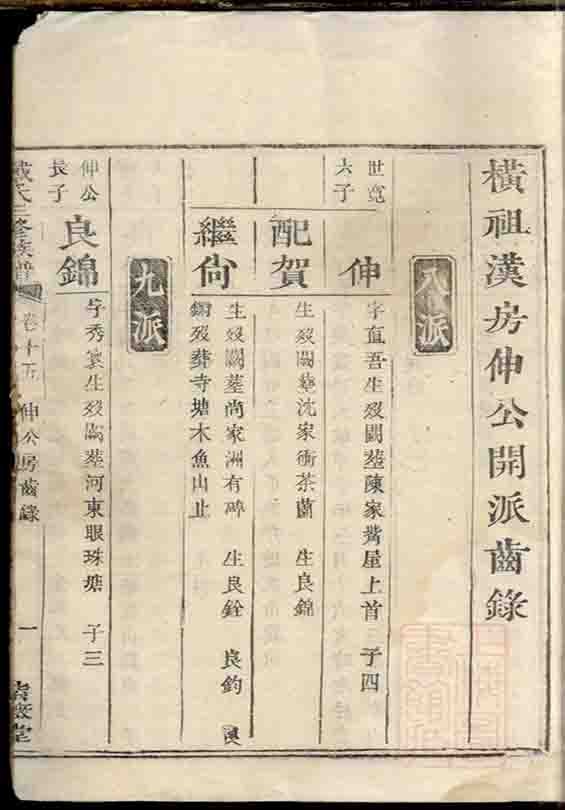 橫祖漢房伸公開派齒錄
八派
世寬
六子
伸
字直吾生歿闕塟陳家觜屋上首 子四
配賀
生歿闕塟沈家衝茶蘭 生良錦
繼尙
生歿闕塟尚家洲有碑 生良銓 良鈞 良
錭歿葬寺塘木魚山止
九派
伸公
長子
良錦
字秀寰生歿闕塟河東眼珠塘 子三
戴氏三修族譜
卷十五 伸公房齒錄
一